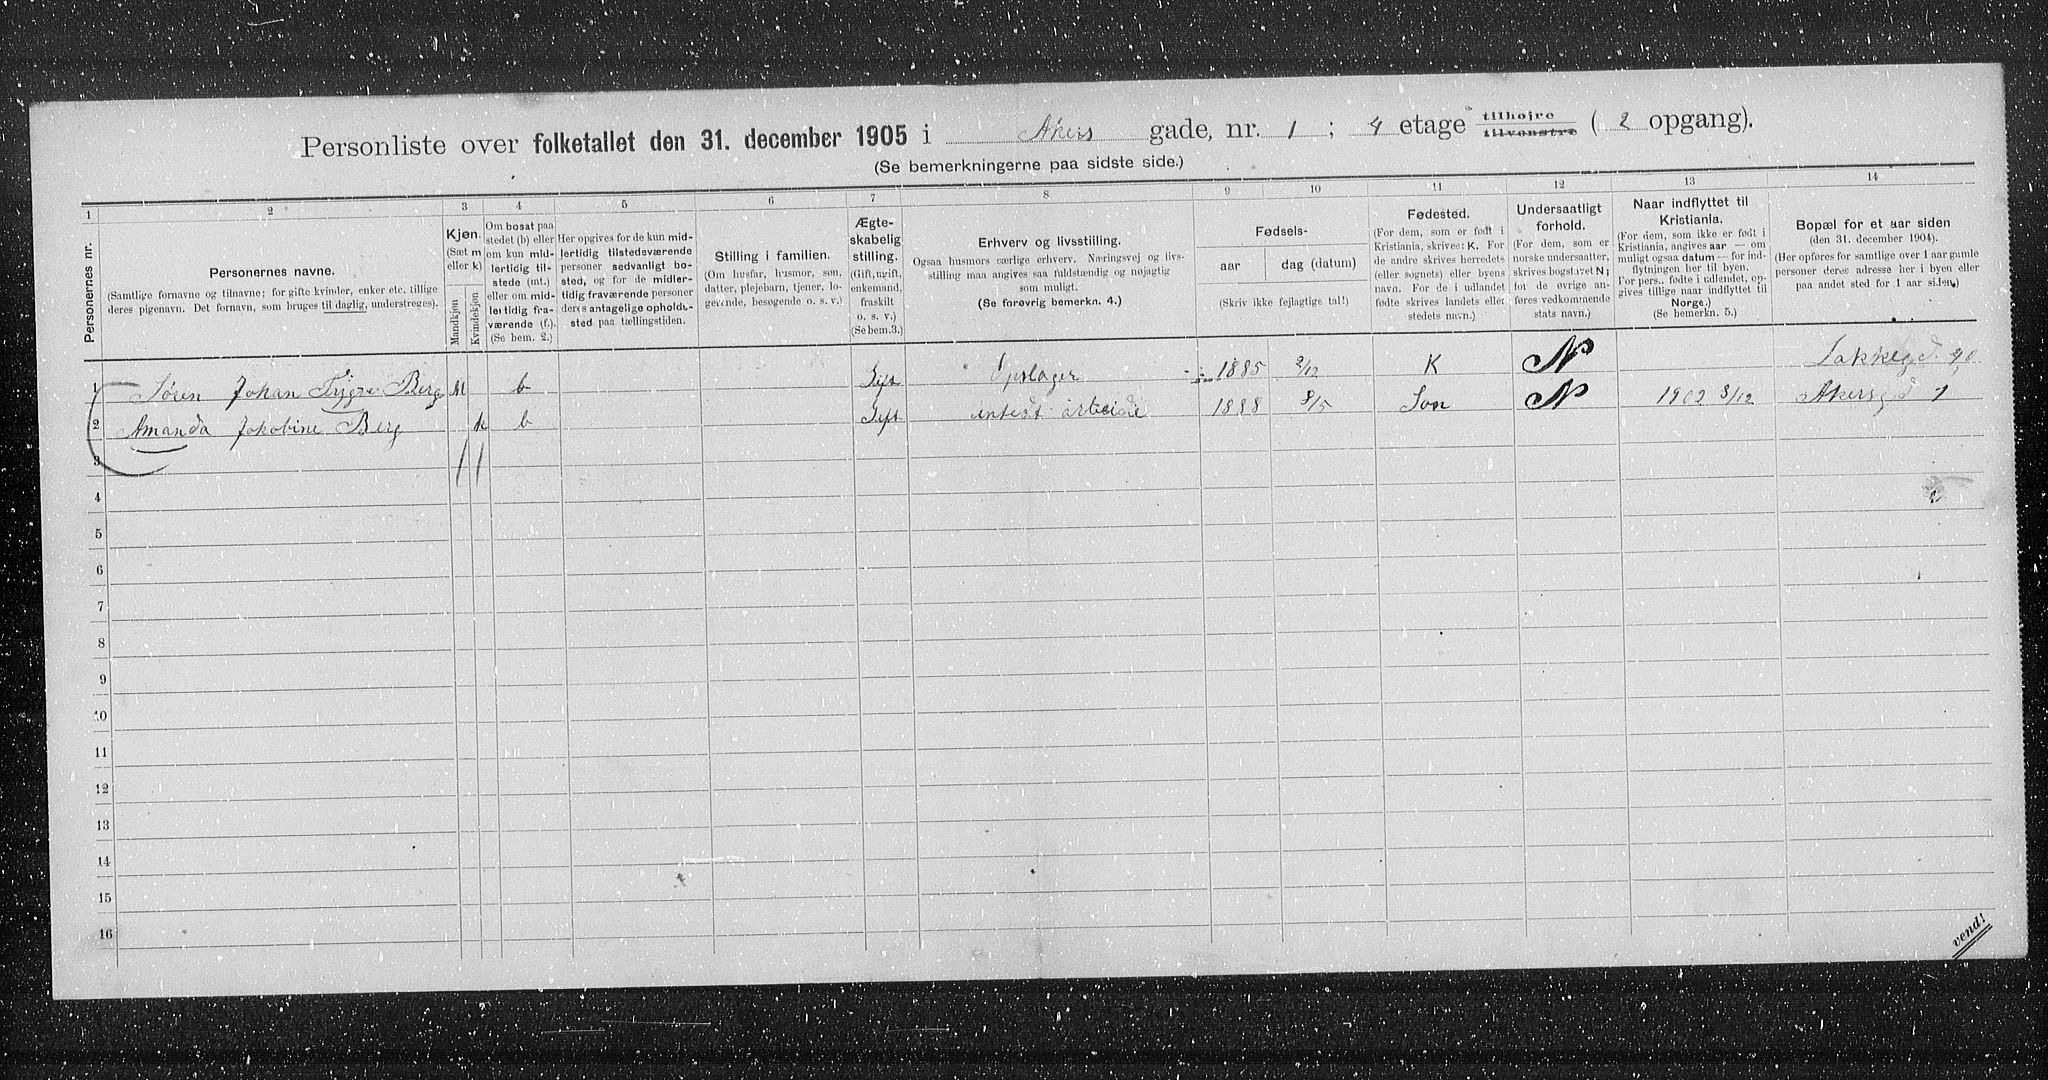 Personliste over folketallet den 31. december 1905 i Akers gade, nr. 1 ; 4 etage tilhøjre tilvenstre ( 2 opgang).
(Se bemerkningerne paa sidste side.)
1 2 3 4 5 6 7 8 9 10 11 12 13 14
Personernes nr.
Personernes navne.
(Samtlige fornavne og tilnavne; for gifte kvinder, enker etc. tillige
deres pigenavn. Det fornavn, som bruges til daglig, understreges).
Kjøn.
(Sæt m
eller k)
Mandkjøn
Kvindekjøn.
Om bosat paa
stedet (b) eller
om kun mid-
lertidig til-
stede (mt.)
eller om mid-
lertidig fra-
værende (f.).
(Se bem. 2.)
Her opgives for de kun mid-
lertidig tilstedeværende
personer sedvanlig bo-
sted, og for de midler-
tidig fraværende personer
deres antagelige opholds-
sted paa tællingstiden.
Stilling i familien.
(Om husfar, husmor, søn,
datter, plejebarn, tjener, lo-
gerende, besøgende o. s. v.)
Ægte-
skabelig
stilling.
(Gift, ugift,
enkemand,
fraskilt
o. s. v.)
(Se bem. 3.)
Erhverv og livsstilling.
Ogsaa husmors særlige erhverv. Næringsvej og livs-
stilling maa angives saa fuldstændig og nøjagtig
som muligt.
(Se forøvrig bemerkn. 4.)
Fødsels-
aar dag (datum)
(Skriv ikke fejlagtige tal!)
Fødested.
(For dem, som er født i
Kristiania, skrives: K. For
de andre skrives herredets
(eller sognets) eller byens
navn. For de i udlandet
fødte skrives landets eller
stedets navn.)
Undersaatligt
forhold.
(For dem, som er
norske undersaatter,
skrives bogstavet N;
for de øvrige an-
føres vedkommende
stats navn.)
Naar indflyttet til
Kristiania.
(For dem, som ikke er født i
Kristiania, angives aar — om
muligt ogsaa datum — for ind-
flytningen her til byen.
For pers., fødte i udlandet, op-
gives tillige naar indflyttet til
Norge.)
(Se bemerkn. 5.)
Bopæl for et aar siden
(den 31. december 1904).
(Her opføres for samtlige over 1 aar gamle
personer deres adresse her i byen eller
paa andet sted for 1 aar siden.)
1 Søren Johan Trygve Berg M b Gift Opslager 1885 2/12 K N Lakkegd. 90
2 Amanda Jakobine Berg k b Gift 1888 8/5 Son N 1902 8/12 Akersgd 1
3
4
5
6
7
8
9
10
11
12
13
14
15
16
vend!